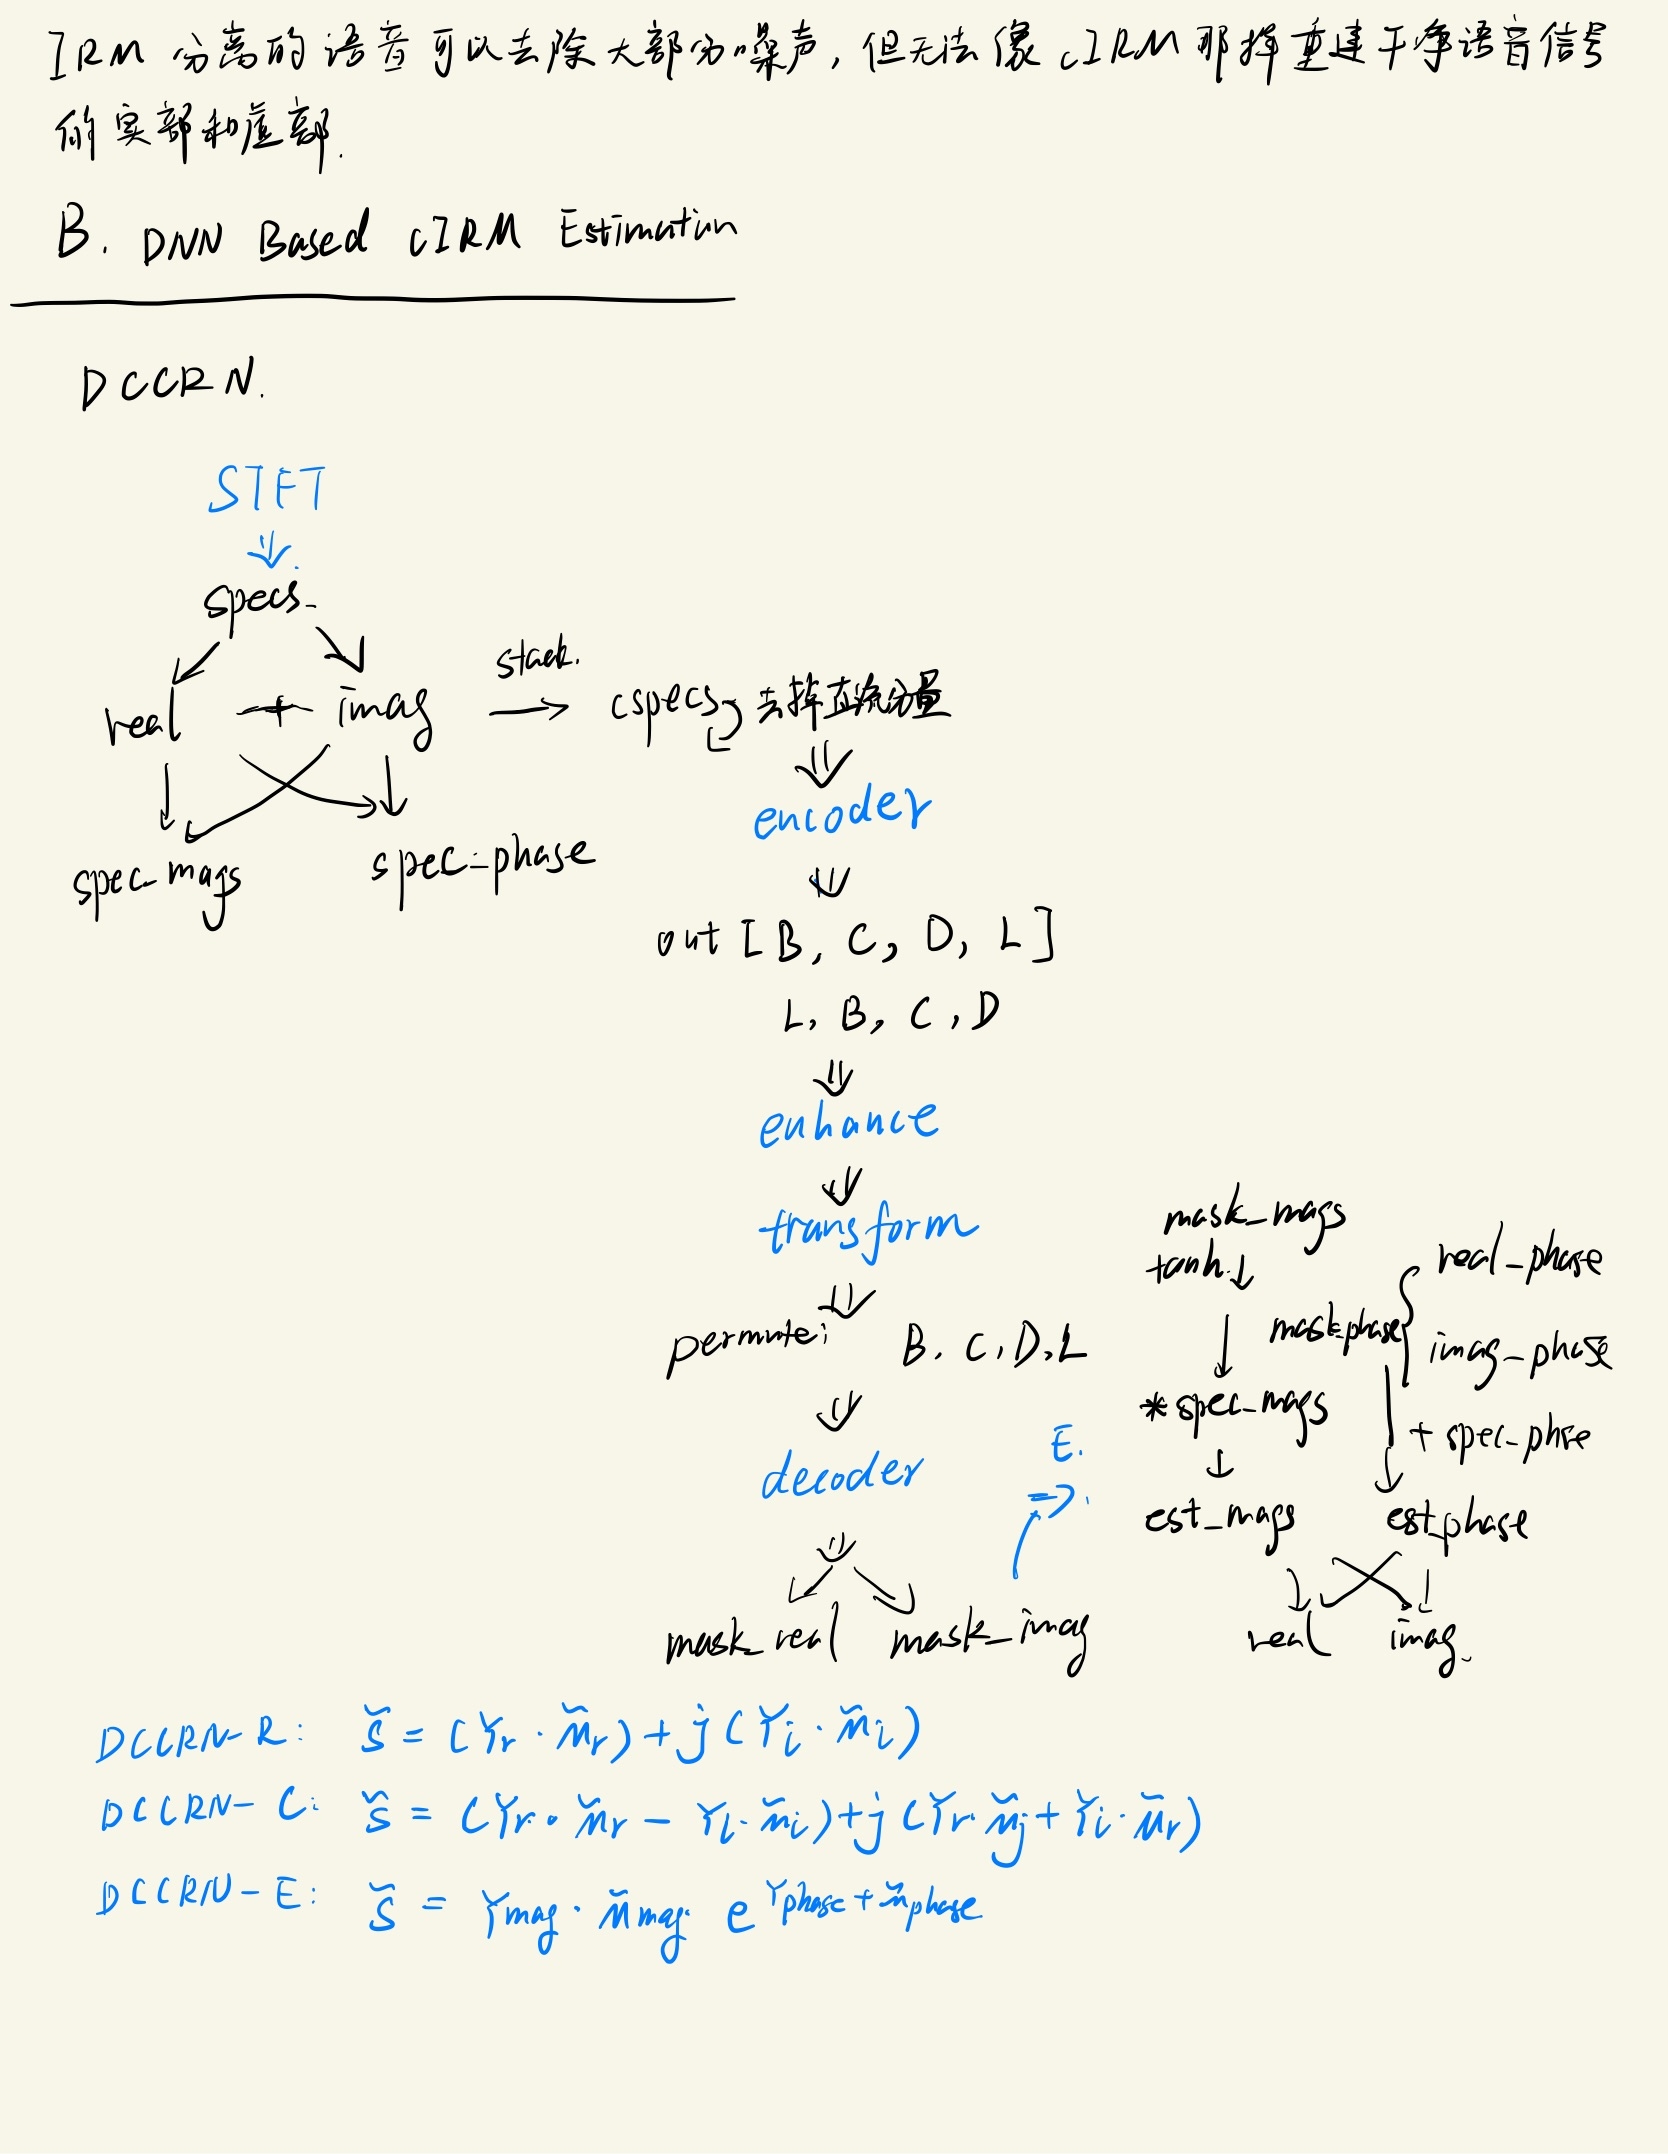 IRM 分离的语音可以去除大部分噪声, 但无法像 cIRM 那样重建干净语音信号
的实部和虚部.
B. DNN Based cIRM Estimation
DCCRN.
STFT
specs
real + imag
stack.
cspecs 去掉直流分量
spec_mags
spec_phase
encoder
out [B, C, D, L]
L, B, C, D
enhance
transform
permute: B, C, D, L
decoder
mask_real mask_imag
E. =>.
mask_mags
tanh
* spec_mags
est_mags
mask_phase { real_phase
imag_phase
+ spec_phse
est_phase
real imag.
DCCRN-R: s̃ = (Ỹr · m̃r) + j (Ỹi · m̃i)
DCCRN-C: s̃ = (Ỹr · m̃r − Ỹi · m̃i) + j (Ỹr · m̃j + Ỹi · m̃r)
DCCRN-E: s̃ = Ỹmag · m̃mag · e^Ỹphase + m̃phase